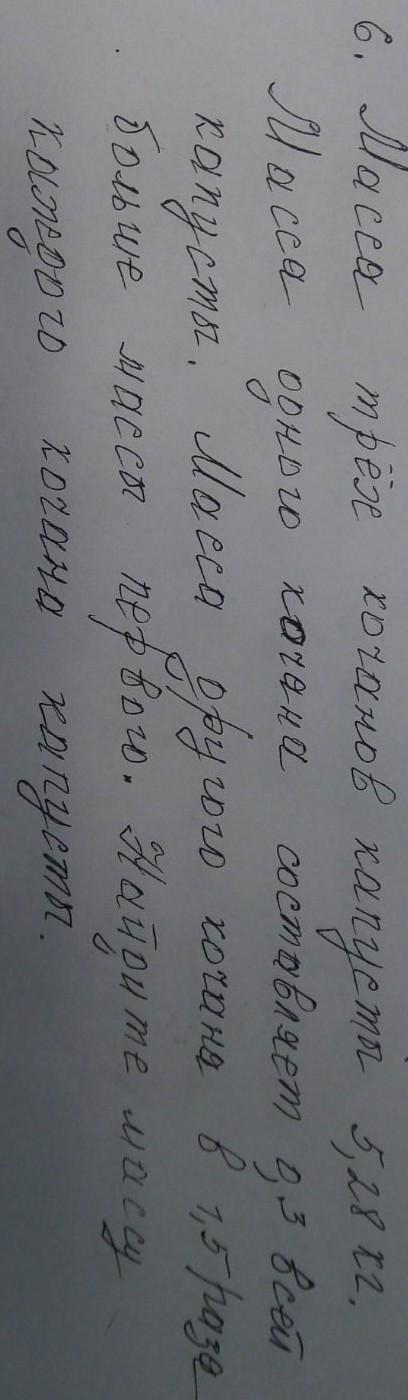 6. Масса трёх кочанов капусты 5,28 кг.
Масса одного кочана составляет 0,3 всей
капусты. Масса другого кочана в 1,5 раза
больше массы первого. Найдите массу
каждого кочана капусты.